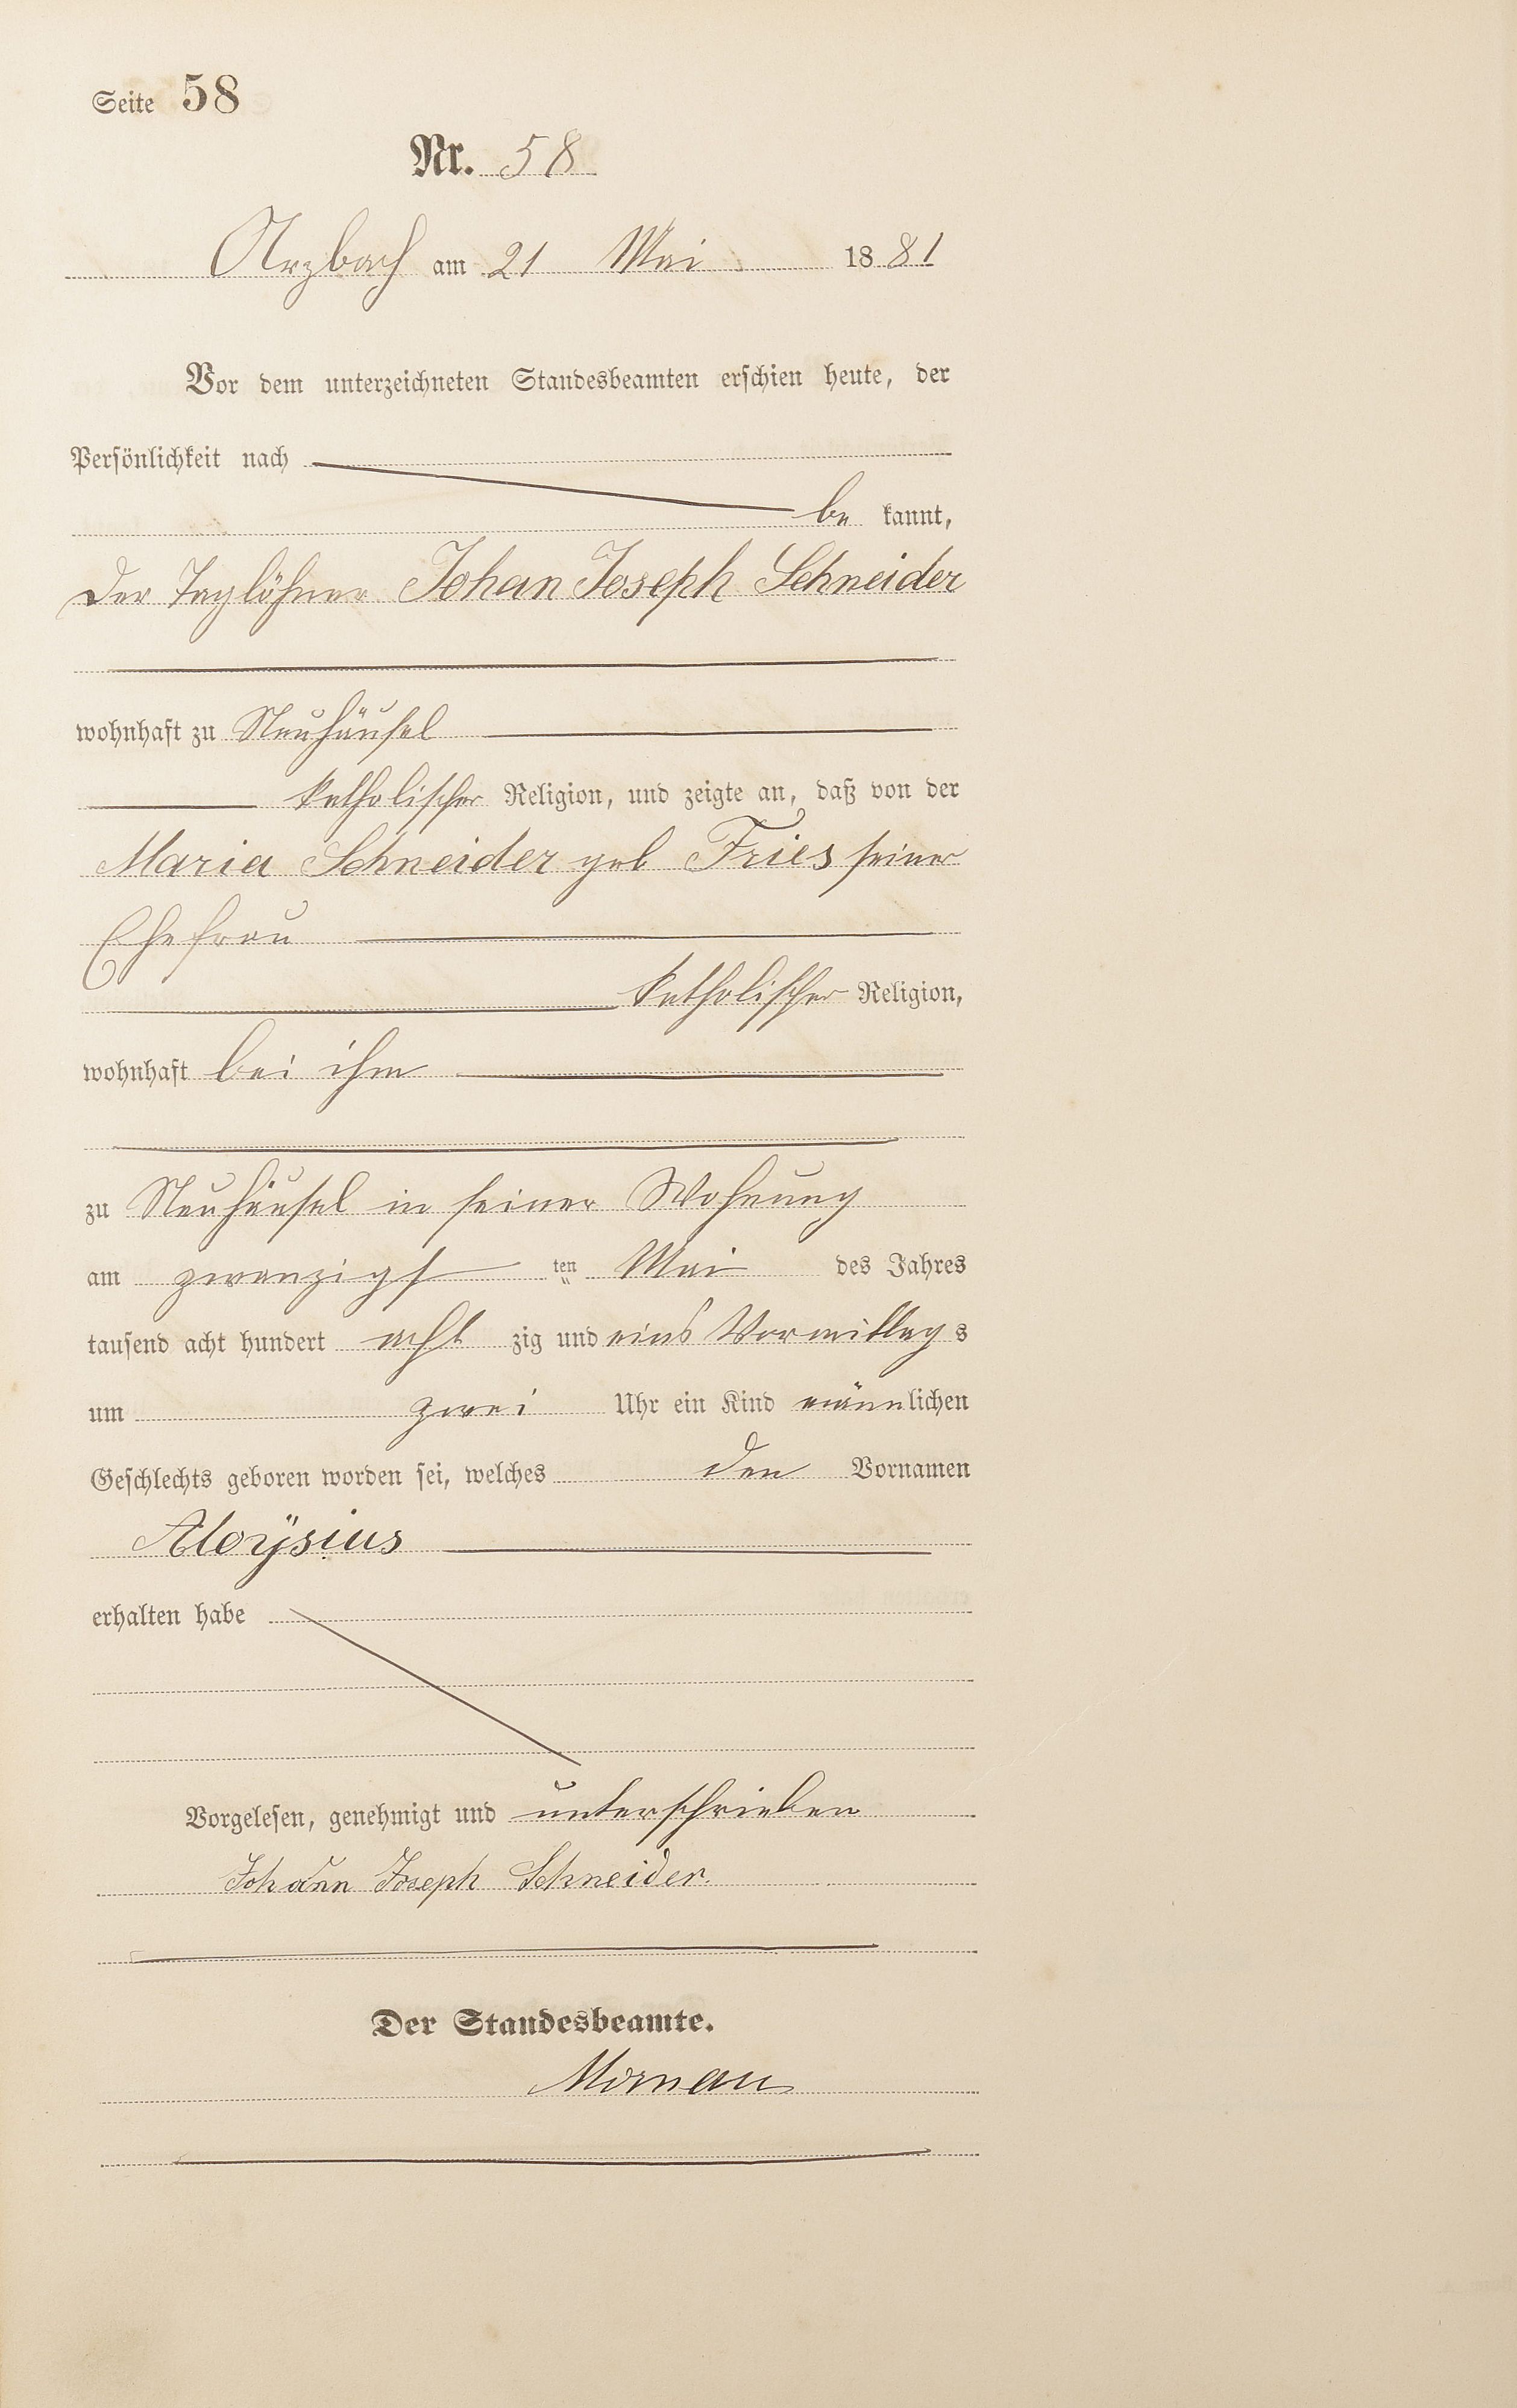 Seite 58
Nr. 58
Arzbach am 21 Mai 1881
Vor dem unterzeichneten Standesbeamten erschien heute, der
Persönlichkeit nach
be kannt,
der Taglöhner Johan Joseph Schneider
wohnhaft zu Neuhäusel
katholischer Religion, und zeigte an, daß von der
Maria Schneider geb Fries seiner
Ehefrau
katholischer Religion,
wohnhaft bei ihm
zu Neuhäusel in seiner Wohnung
am zwanzigst ten Mai des Jahres
tausend acht hundert acht zig und eins Vormittags
um zwei Uhr ein Kind männlichen
Geschlechts geboren worden sei, welches den Vornamen
Aloÿsius
erhalten habe
Vorgelesen, genehmigt und unterschrieben
Johann Joseph Schneider.
Der Standesbeamte.